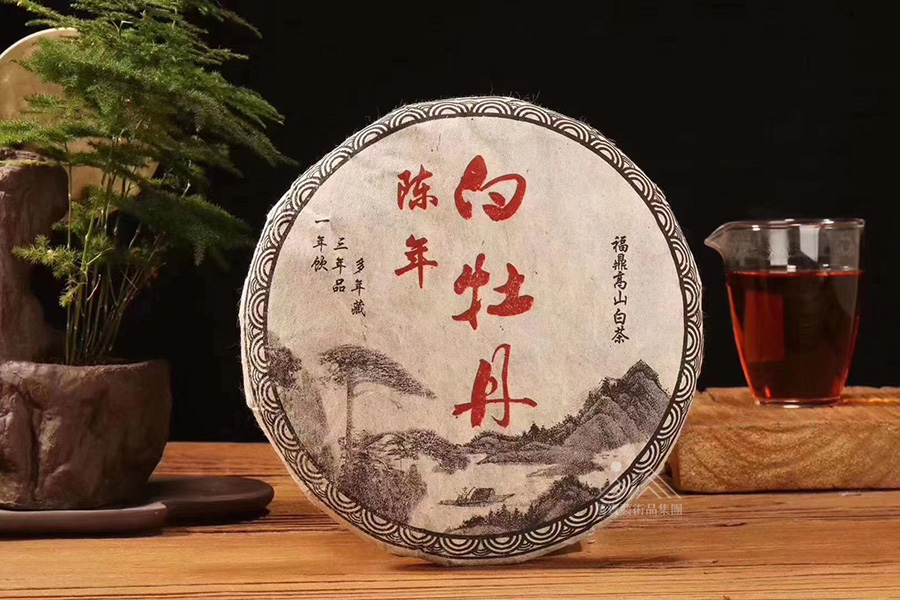 福鼎高山白茶
白牡丹
陈年
多年藏
三年品
一年饮
術品集團